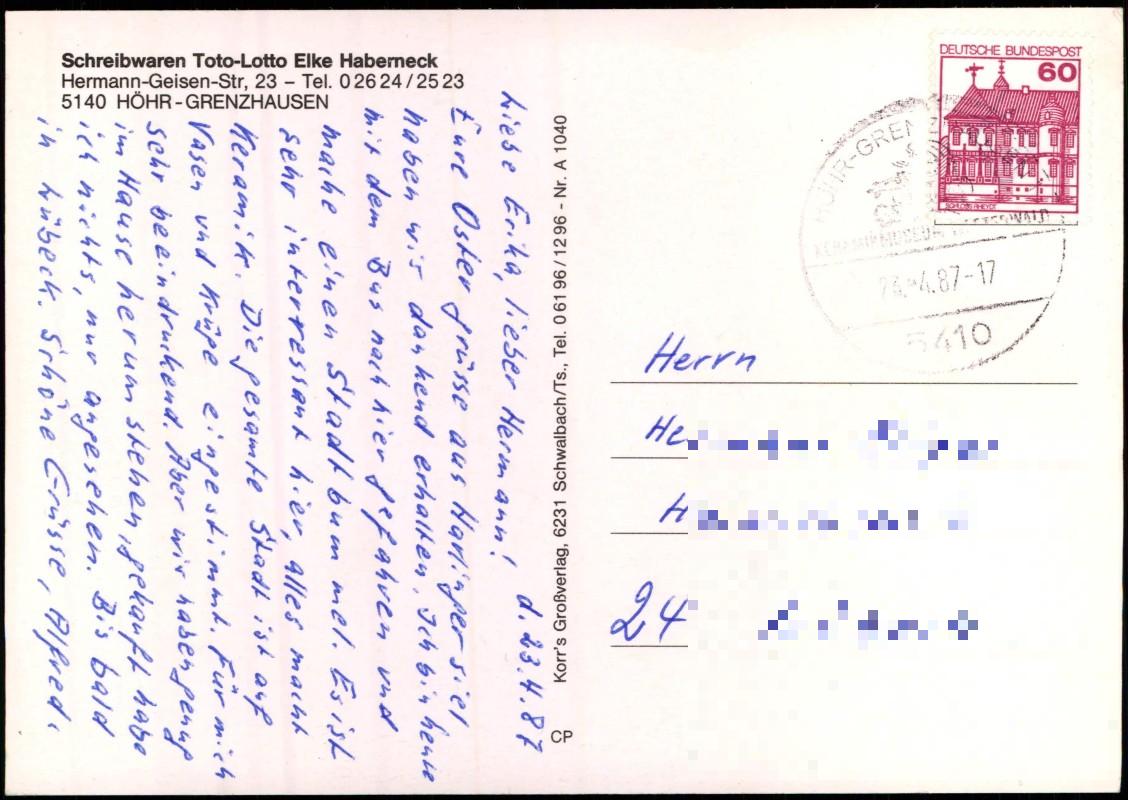 Schreibwaren Toto-Lotto Elke Haberneck
Hermann-Geisen-Str, 23 – Tel. 0 26 24 / 25 23
5140 HÖHR-GRENZHAUSEN
d. 23.4.87
Liebe Erika, lieber Hermann!
Eure Ostergrüsse aus Harlingersiel
haben wir dankend erhalten. Ich bin heute
mit dem Bus nach hier gefahren und
mache einen Stadtbummel. Es ist
sehr interressant hier, alles macht
Keramik. Die gesamte Stadt ist auf
Vasen und Krüge eingestimmt. Für mich
sehr beeindruckend. Aber wir haben genug
im Hause herumstehen, gekauft habe
ich nichts, nur angesehen. Bis bald
in Lübeck. Schöne Grüsse, Alfred.
Korr's Großverlag, 6231 Schwalbach/Ts., Tel. 0 61 96 / 12 96 - Nr. A 1040
CP
DEUTSCHE BUNDESPOST
60
SCHLOSS RHEYDT
HÖHR-GREN
WESTERWALD
.4.87-17
5410
Herrn
He
H
24